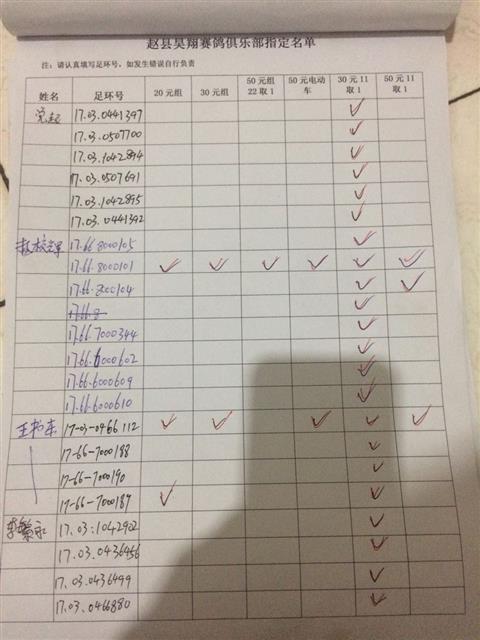 赵县昊翔赛鸽俱乐部指定名单
注：请认真填写足环号，如发生错误自行负责
姓名 足环号 20元组 30元组 50元组22取1 50元电动车 30元11取1 50元11取1
17.03.0441397 ✓
17.03.0507700 ✓
17.03.1042894 ✓
17.03.0507691 ✓
17.03.1042895 ✓
17.03.0441392 ✓
17.66.8000105 ✓
17.66.8000101 ✓ ✓ ✓ ✓ ✓ ✓
17.66.8000104 ✓ ✓
17.66.8 ✓
17.66.7000344 ✓
17.66.6000602 ✓
17.66.6000609 ✓
17.66.6000610 ✓
17-03-0466112 ✓ ✓ ✓ ✓ ✓
17-66-7000188 ✓
17-66-7000190 ✓
17-66-7000187 ✓ ✓
李繁永 17.03.1042902 ✓
17.03.0436456 ✓
17.03.0436499 ✓
17.03.0466880 ✓